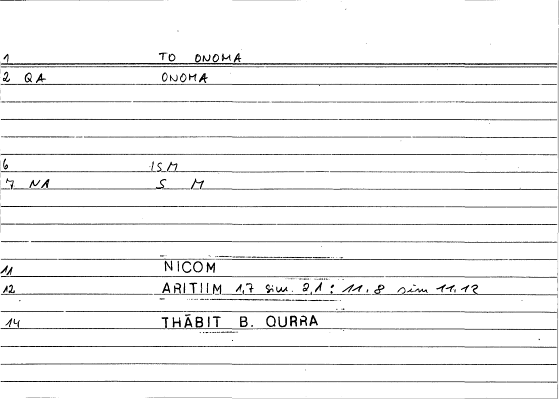 1 TO ONOMA
2 QA ONOMA
6 ISM
7 NA S M
11 NICOM
12 ARITIIM 1,7 sim. 2,1 : 11.8 sim 11.12
14 THĀBIT B. QURRA